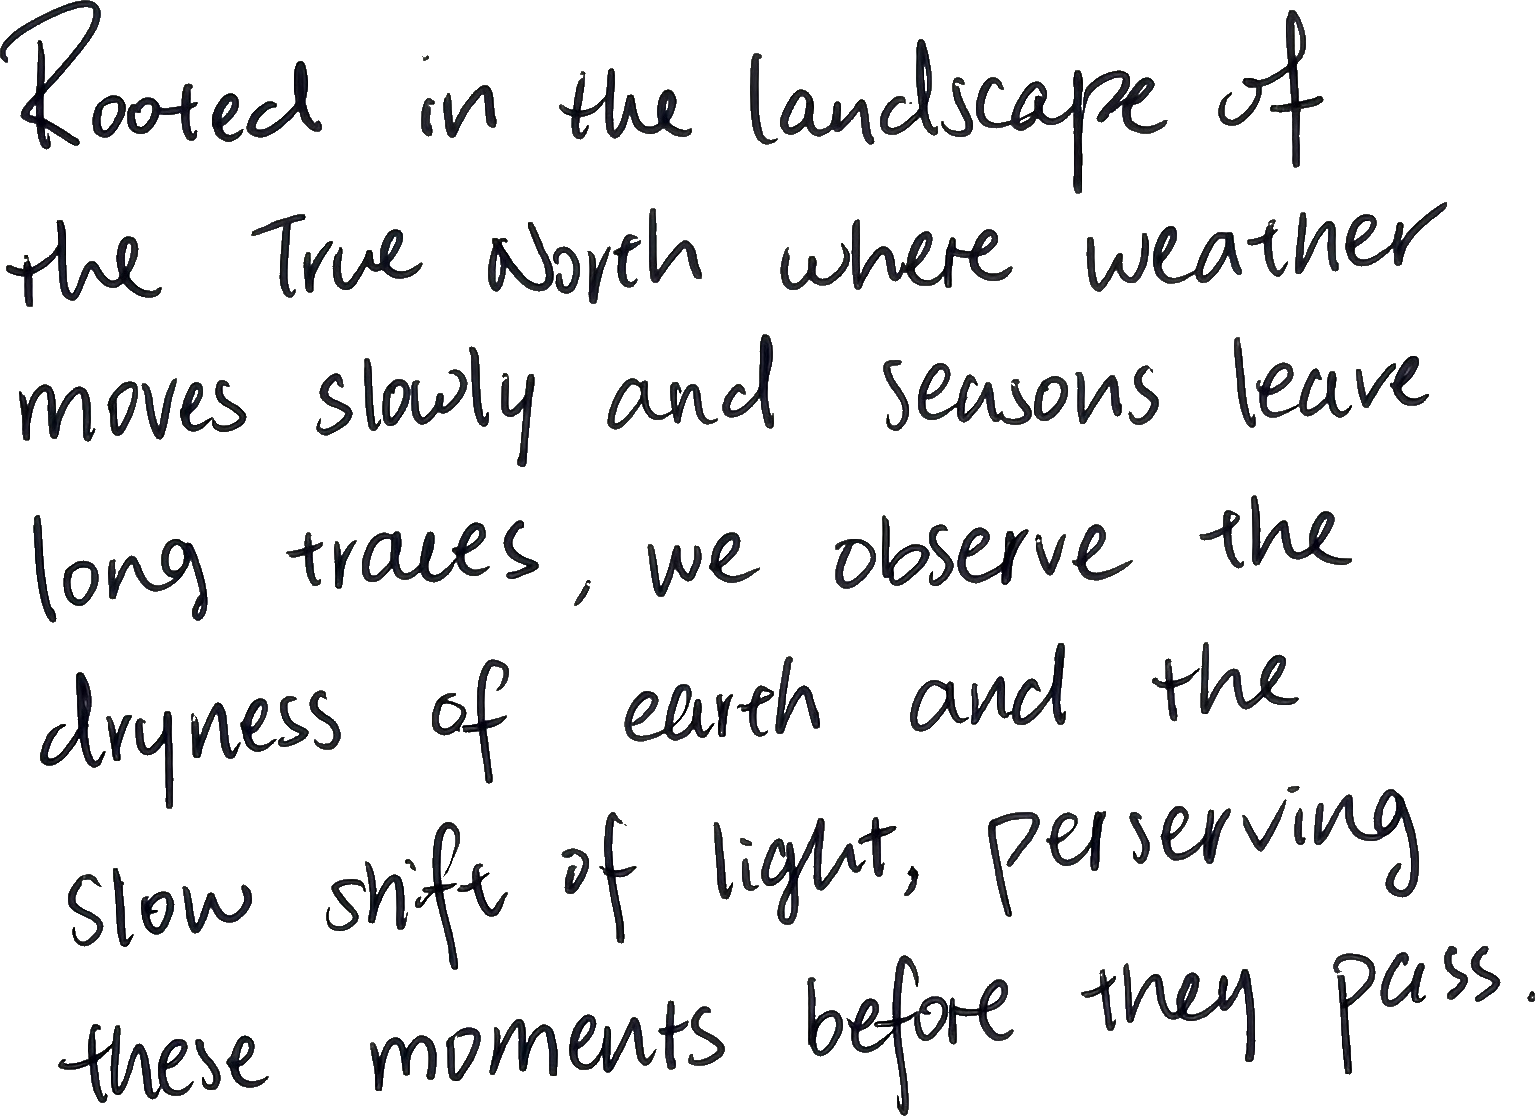 Rooted in the landscape of
the True North where weather
moves slowly and seasons leave
long traces, we observe the
dryness of earth and the
slow shift of light, perserving
these moments before they pass.